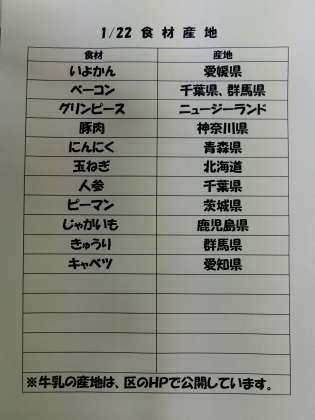 1/22 食材産地
食材 産地
いよかん 愛媛県
ベーコン 千葉県、群馬県
グリンピース ニュージーランド
豚肉 神奈川県
にんにく 青森県
玉ねぎ 北海道
人参 千葉県
ピーマン 茨城県
じゃがいも 鹿児島県
きゅうり 群馬県
キャベツ 愛知県
※牛乳の産地は、区のHPで公開しています。